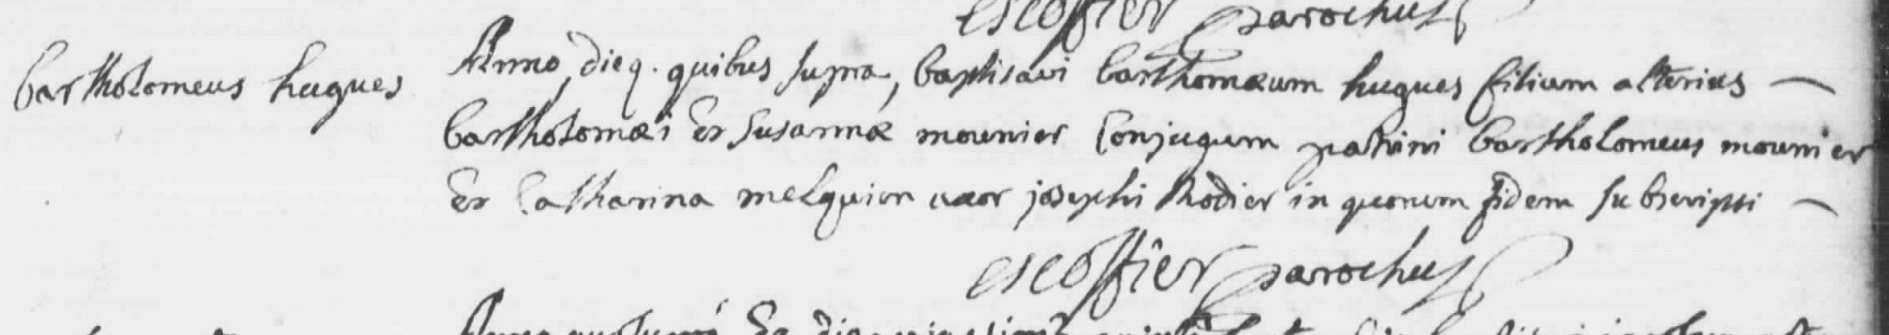 escoffier parochus
bartholomeus hugues
Anno, dieq. quibus supra, baptisavi barthomæum hugues filium alterius —
bartholomæi Et susannæ mounier Conjugum patrini bartholomeus mounier
Et Catharina melquion uxor josephi Rodier in quorum fidem subscripsi —
escoffier parochus